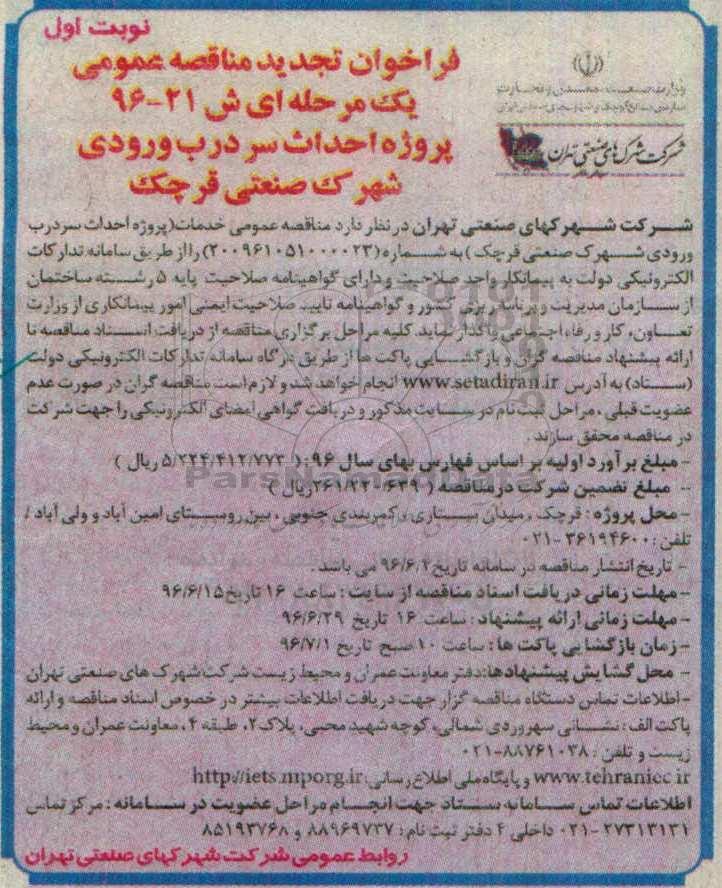 نوبت اول
فراخوان تجدید مناقصه عمومی
یک مرحله ای ش ۲۱-۹۶
پروژه احداث سردرب ورودی
شهرک صنعتی قرچک
وزارت صنعت، معدن و تجارت
شرکت شهرک‌های صنعتی تهران
شرکت شهرکهای صنعتی تهران در نظر دارد مناقصه عمومی خدمات (پروژه احداث سردرب
ورودی شهرک صنعتی قرچک) به شماره (۲۰۰۹۶۱۰۵۱۰۰۰۰۲۳) را از طریق سامانه تدارکات
الکترونیکی دولت به پیمانکار واجد صلاحیت و دارای گواهینامه صلاحیت پایه ۵ رشته ساختمان
از سازمان مدیریت و برنامه ریزی کشور و گواهینامه تایید صلاحیت ایمنی امور پیمانکاری از وزارت
تعاون، کار و رفاه اجتماعی واگذار نماید. کلیه مراحل برگزاری مناقصه از دریافت اسناد مناقصه تا
ارائه پیشنهاد مناقصه گران و بازگشایی پاکت ها از طریق درگاه سامانه تدارکات الکترونیکی دولت
(ستاد) به آدرس www.setadiran.ir انجام خواهد شد و لازم است مناقصه گران در صورت عدم
عضویت قبلی، مراحل ثبت نام در سایت مذکور و دریافت گواهی امضای الکترونیکی را جهت شرکت
در مناقصه محقق سازند.
- مبلغ برآورد اولیه بر اساس فهارس بهای سال ۹۶: (۵/۲۲۴/۴۱۲/۷۷۳ ریال)
- مبلغ تضمین شرکت در مناقصه (۲۶۱/۲۲۰/۶۳۹ ریال)
- محل پروژه: قرچک، میدان بیستاری، کمربندی جنوبی، بین روستای امین آباد و ولی آباد /
تلفن: ۳۶۱۹۴۶۰۰-۰۲۱
- تاریخ انتشار مناقصه در سامانه تاریخ ۹۶/۶/۲ می باشد.
- مهلت زمانی دریافت اسناد مناقصه از سایت: ساعت ۱۶ تاریخ ۹۶/۶/۱۵
- مهلت زمانی ارائه پیشنهاد: ساعت ۱۶ تاریخ ۹۶/۶/۲۹
- زمان بازگشایی پاکت ها: ساعت ۱۰ صبح تاریخ ۹۶/۷/۱
- محل گشایش پیشنهادها: دفتر معاونت عمران و محیط زیست شرکت شهرک های صنعتی تهران
- اطلاعات تماس دستگاه مناقصه گزار جهت دریافت اطلاعات بیشتر در خصوص اسناد مناقصه و ارائه
پاکت الف: نشانی سهروردی شمالی، کوچه شهید محبی، پلاک ۲، طبقه ۴، معاونت عمران و محیط
زیست و تلفن: ۸۸۷۶۱۰۳۸-۰۲۱
www.tehraniec.ir و پایگاه ملی اطلاع رسانی: http://iets.mporg.ir
اطلاعات تماس سامانه ستاد جهت انجام مراحل عضویت در سامانه: مرکز تماس
۲۷۳۱۳۱۳۱-۰۲۱ داخلی ۴ دفتر ثبت نام: ۸۸۹۶۹۷۳۷ و ۸۵۱۹۳۷۶۸
روابط عمومی شرکت شهرکهای صنعتی تهران